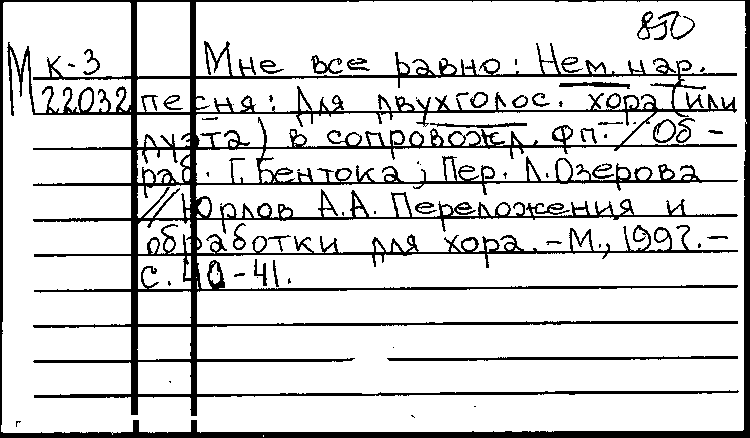 850
М к-3 Мне все равно: Нем. нар.
22032 песня: Для двухголос. хора (или
дуэта) в сопровожд. фп. / Об-
раб. Г. Бентока; Пер. Л. Озерова
// Юрлов А.А. Переложения и
обработки для хора. - М., 1997. -
с. 40-41.